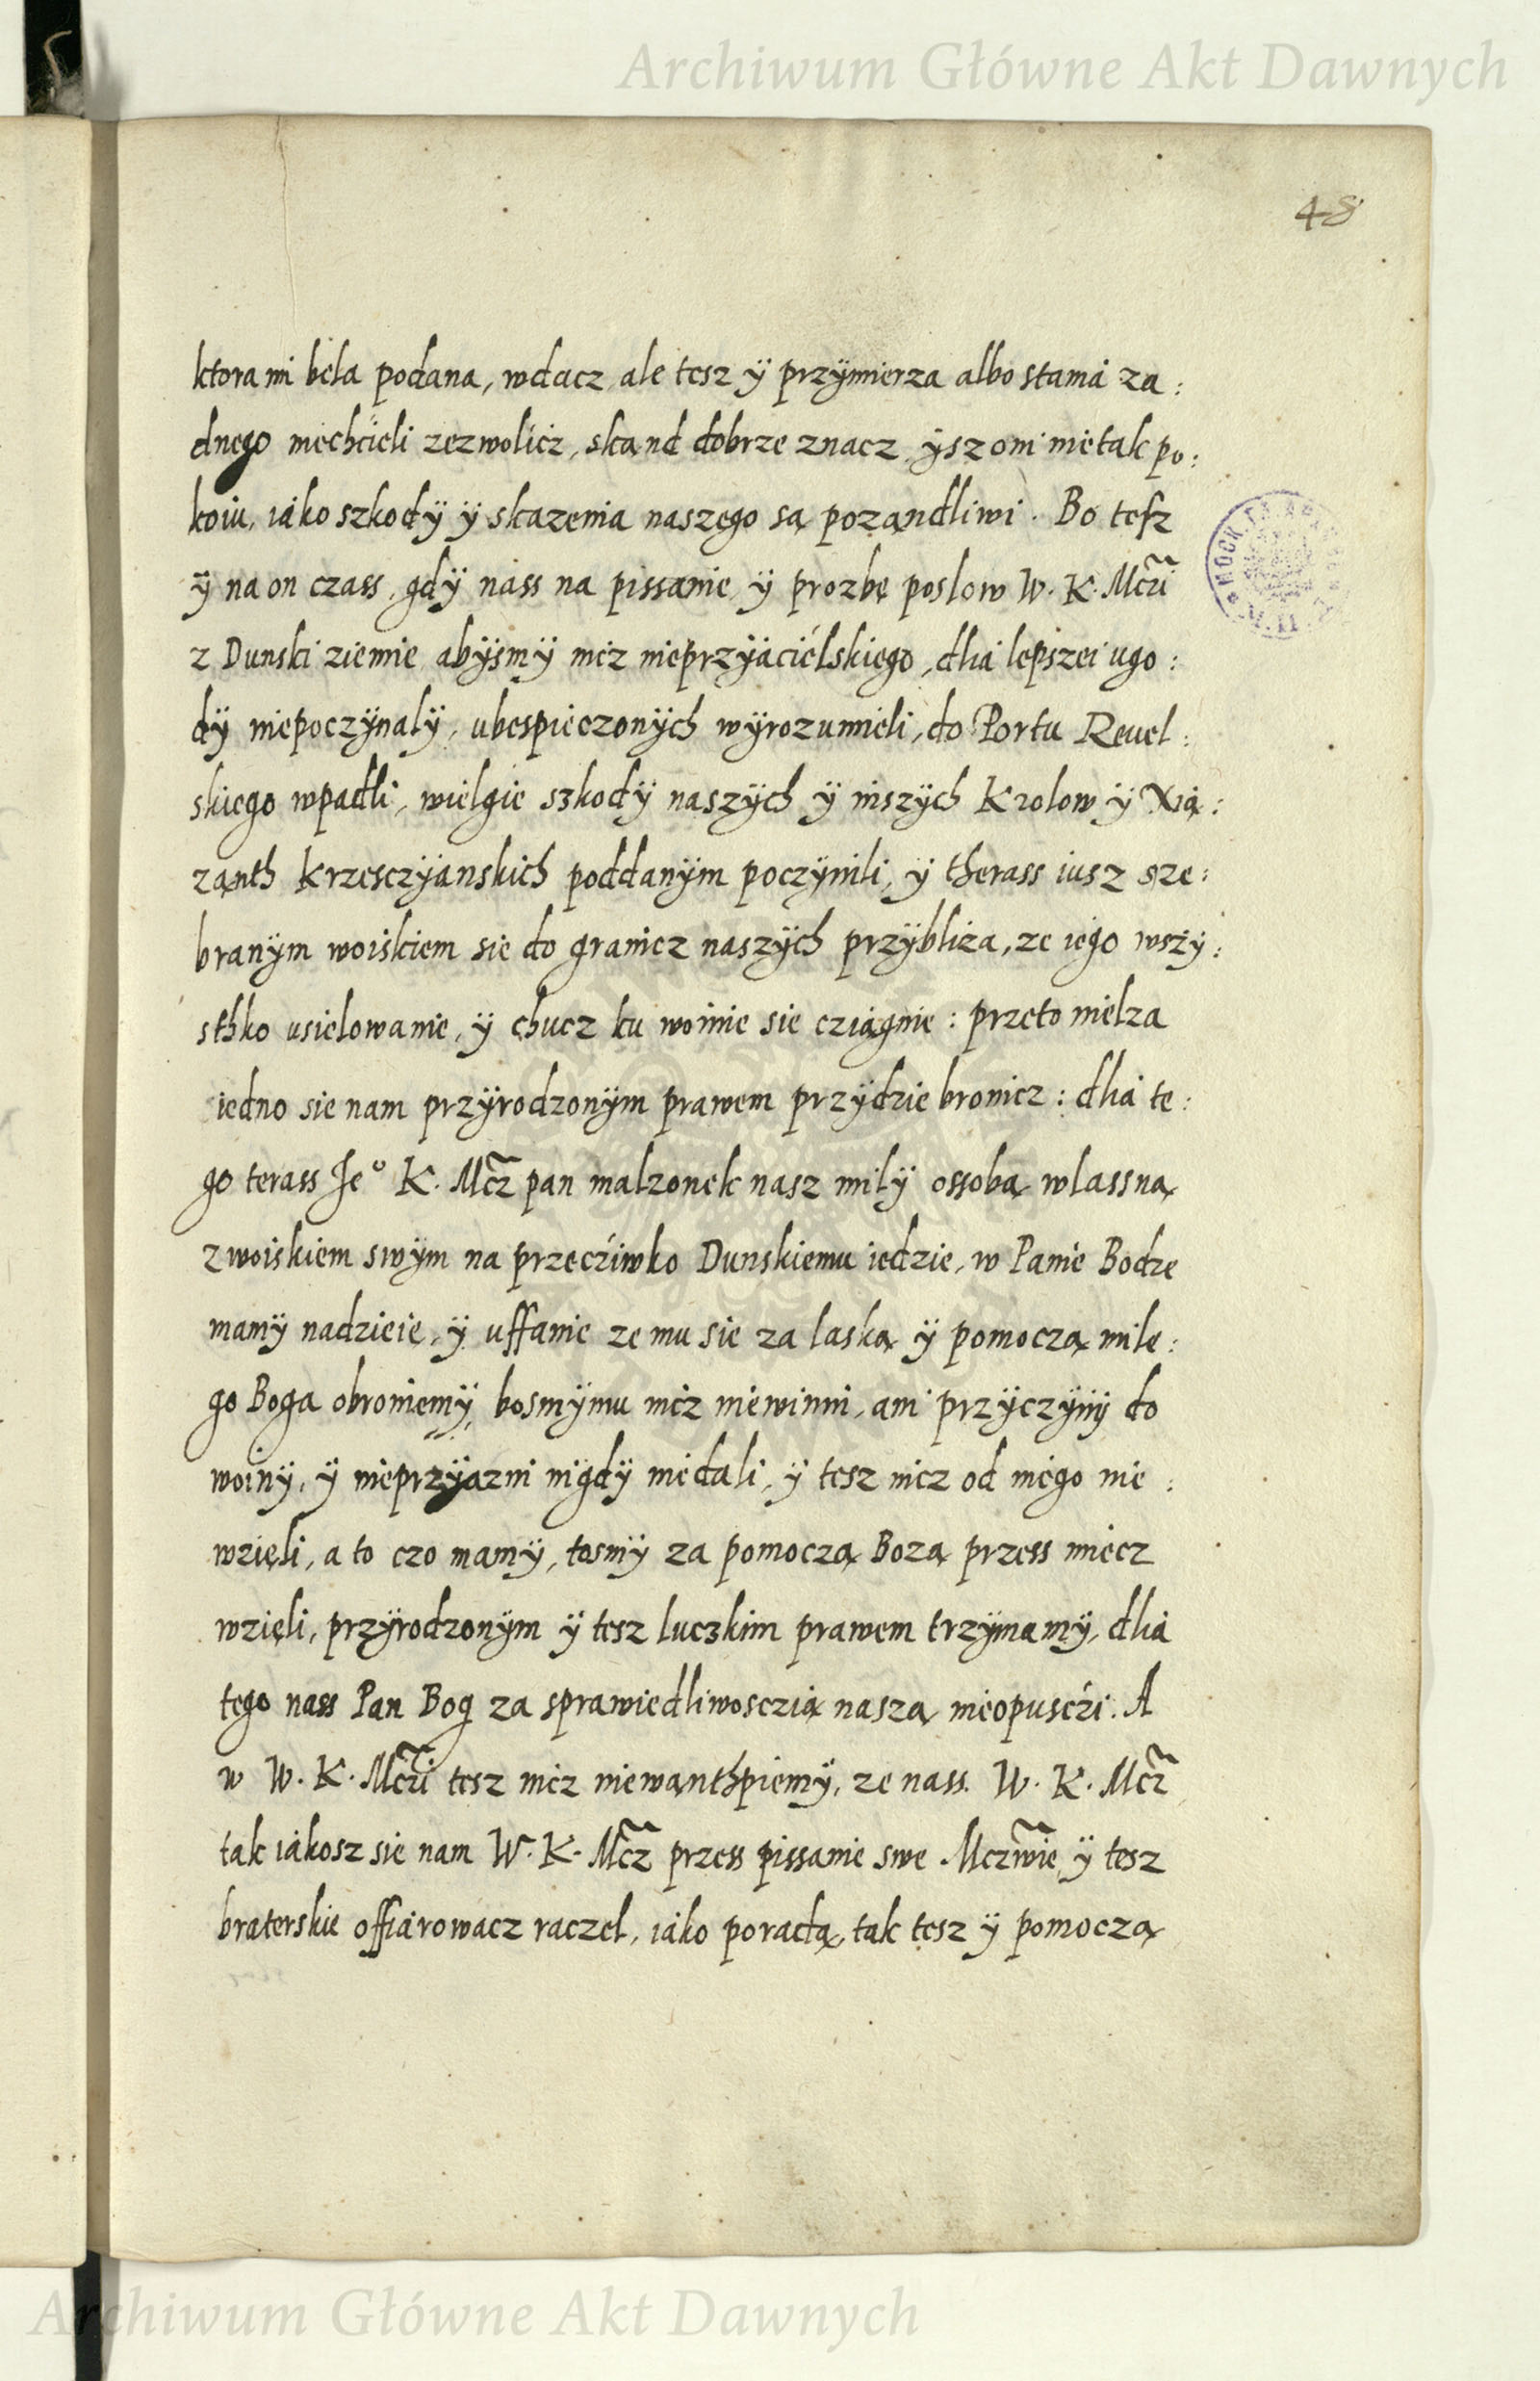 Archiwum Główne Akt Dawnych
48
ktora mi bela podana, wdacz ale tesz ÿ przÿmierza albo stama za:
dnego niechcieli zezwolicz, skand dobrze znacz ÿsz oni nie tak po:
koiu, iako szkodÿ ÿ skazenia naszego są pozandliwi. Bo tesz
ÿ na on czass, gdÿ nass na pissanie ÿ prozbę poslow W. K. Mczi
z Dunski ziemie abÿsmÿ nicz nieprzÿiacielskiego, dlia lepszei ugo:
dÿ niepoczÿnalÿ, ubespieczonÿch wÿrozumieli, do Portu Reuel:
skiego wpadli, wielgie szkodÿ naszÿch ÿ inszÿch Krolow ÿ Xią:
ząnth Krzesczÿanskich poddanÿm poczÿnili, ÿ therass iusz sze:
branÿm woiskiem sie do granicz naszÿch przÿbliza, ze iego wszÿ:
sthko usielowanie, ÿ chucz ku woinie sie cziągnie: przeto nielza
iedno sie nam przÿrodzonÿm prawem przÿdzie bronicz: dlia te:
go terass Jeº K. Mcz pan malzonek nasz milÿ ossobą wlassną
z woiskiem swÿm na przecziwko Dunskiemu iedzie, w Panie Bodze
mamÿ nadzieie, ÿ uffanie ze mu sie za laską ÿ pomoczą mile:
go Boga obroniemÿ, bosmÿmu nicz niewinni, ani przÿczÿnÿ do
woinÿ, ÿ nieprzÿazni nigdÿ niedali, ÿ tesz nicz od niego nie:
wzięli, a to czo mamÿ, tosmÿ za pomoczą Bozą przess miecz
wzięli, przÿrodzonÿm ÿ tesz luczkim prawem trzÿmamÿ, dlia
tego nass Pan Bog za sprawiedliwosczią naszą nieopusczi. A
w W. K. Mczi tesz nicz niewąnthpiemÿ, ze nass W. K. Mcz
tak iakosz sie nam W. K. Mcz przess pissanie swe Mcziwie, ÿ tesz
braterskie offiarowacz raczel, iako poradą, tak tesz ÿ pomoczą
Archiwum Główne Akt Dawnych